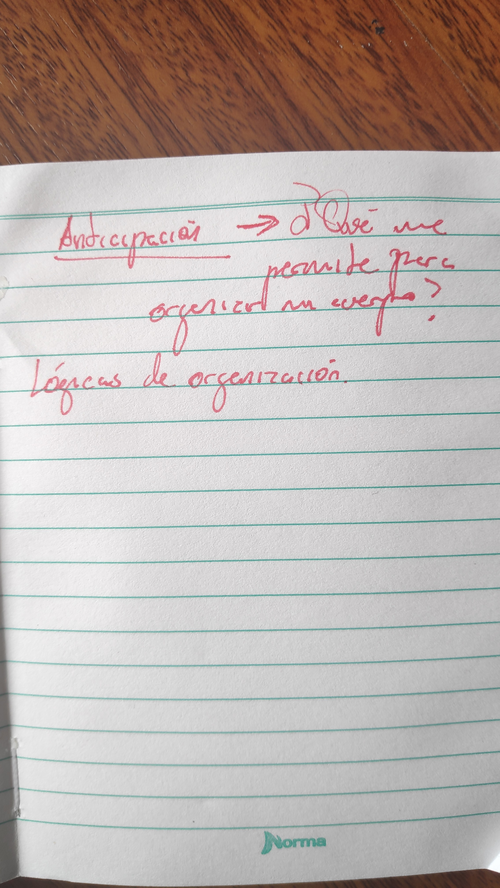 Anticipación → ¿Qué me
permite para
organizar mi cuerpo?
Lógicas de organización.
Norma